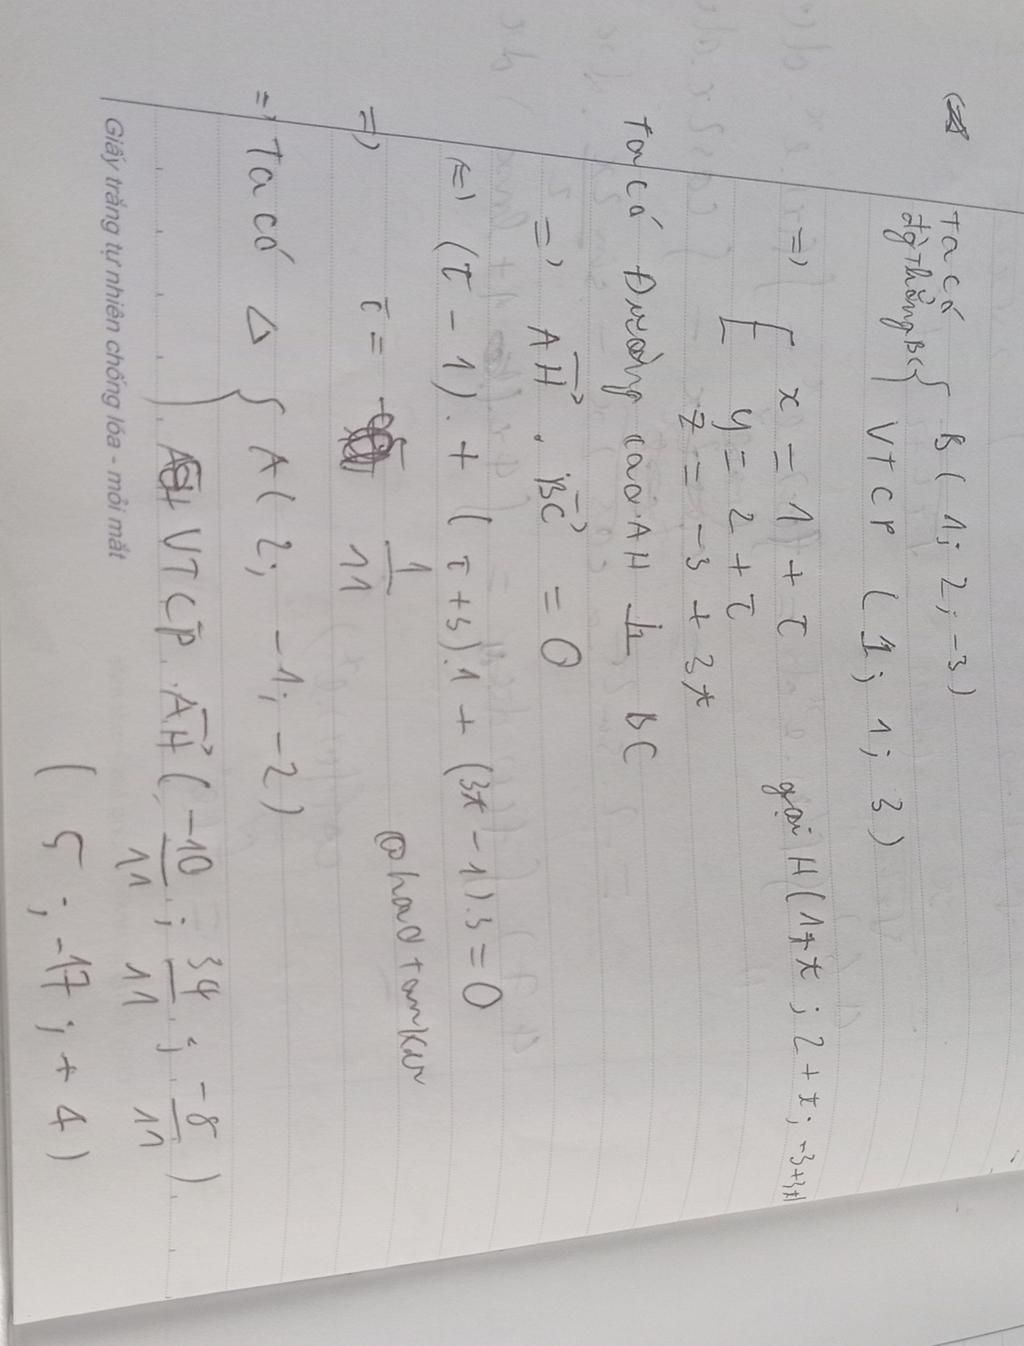 Ta có { B(1; 2; -3)
đg thẳng BC { VTCP (1; 1; 3)
=> [ x = 1 + t gọi H(1+t; 2+t; -3+3t)
y = 2 + t
z = -3 + 3t
Ta có Đường cao AH ⊥ BC
=> AH . BC = 0
(=) (t - 1). + (t+3).1 + (3t - 1).3 = 0
=) t = 1/11
@hadtankur
=) Ta có Δ { A(2; -1; -2)
VTCP AH (-10/11; 34/11; -8/11).
(5; -17; +4)
Giấy trắng tự nhiên chống lóa - mỏi mắt